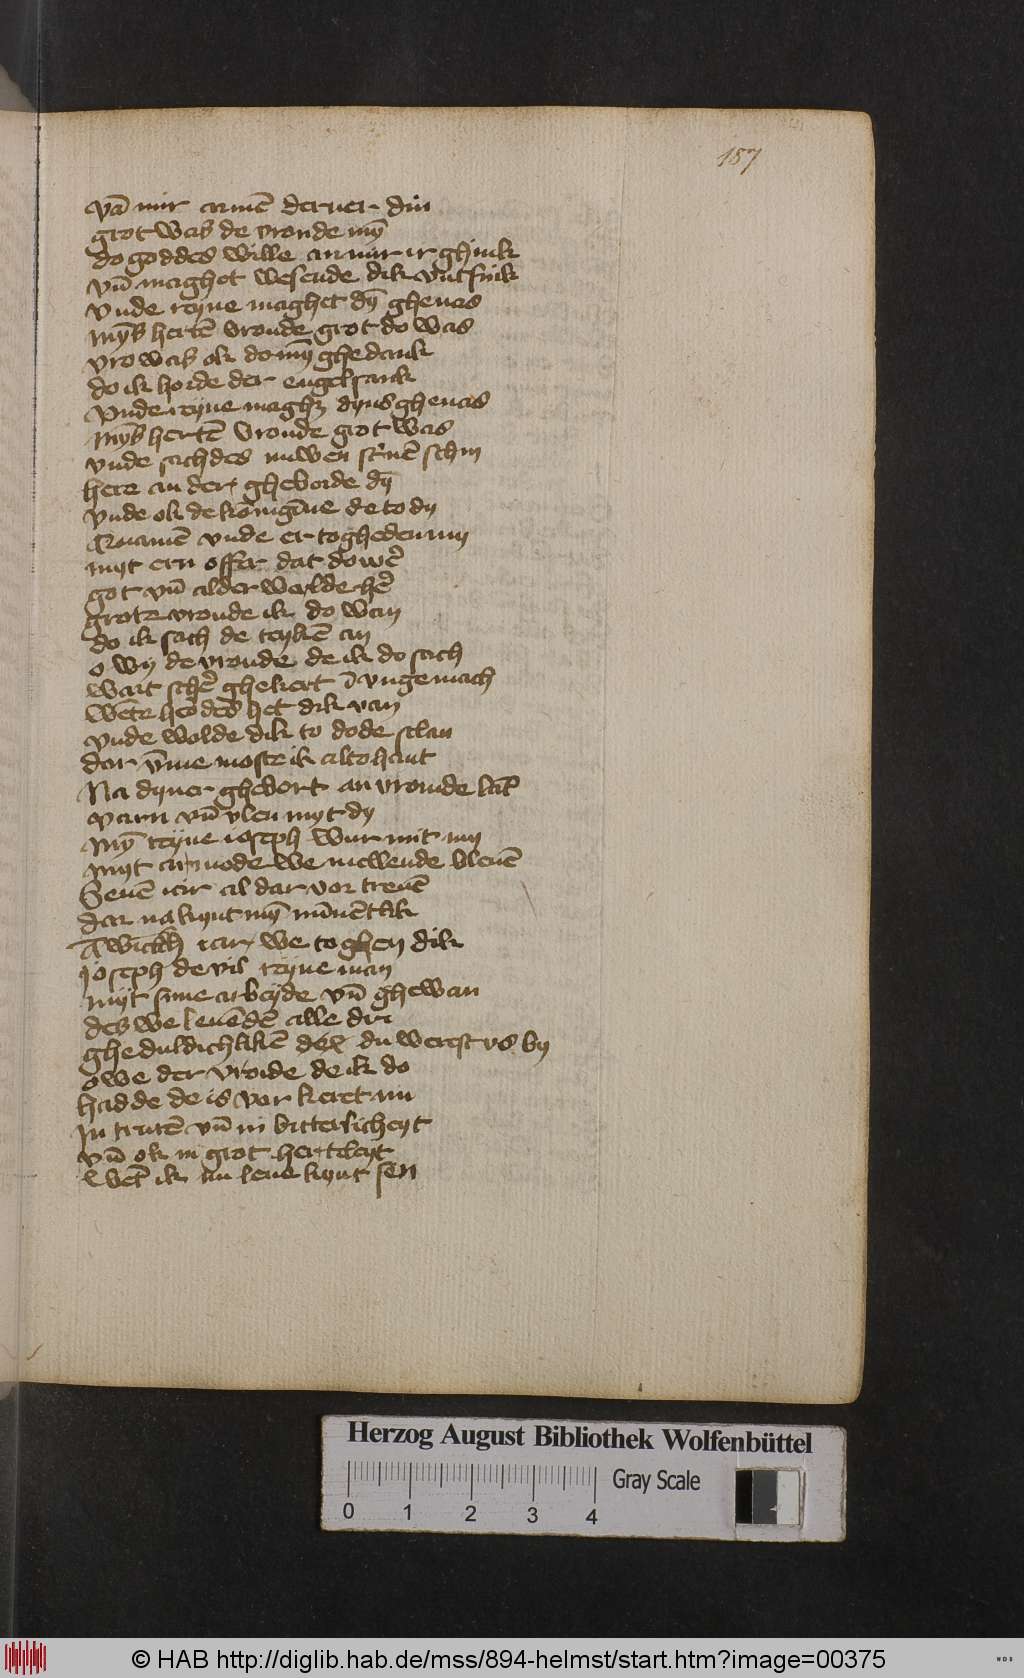 187
vā mir armē derner din
grot was de vronde mȳ
do goddes wille an mir irghink
vn̄ maghet wesende dik vntfink
vnde reyne maghet dȳ ghenas
mȳs hertē vronde grot do was
vro was ok do mȳ ghedank
do ik horde der engel sank
vnde reyne magh dyns ghenas
mȳs hertē vronde grot was
vnde sach des niwen st'nē schin
here an der gheborde dȳ
vnde ok de konīgīne de to dy
quamē vnde er togheden my
myt ern offer dat do we'
got vn̄ alder werlde he'
grote vronde ik do wan
do ik sach de teykē an
o wy de vronde de ik do sach
wart sche' ghekert ī vngemach
wēte herodes het dik van
vnde wolde dik to dode slan
dar v̄me moste ik altohant
Na dyner ghebort an vromde lāt
varn vn̄ vlen myt dy
mȳ reyne ioseph wur mit my
myt armode we mellende bleuē
Seuē iar al dar vor treuē
dar na kynt mȳ mīnētlik
iar we toghen dik
ioseph de vil reyne man
myt sime arbeyde vn̄ ghewan
des we leuedē alle dri
gheduldichlikē du werest vs by
owe der vroide de ik do
hadde de is vor keret mi
In trurē vn̄ in bitterlicheyt
vn̄ ok in grot herteleyt
wēt ik mi leue kynt sen
Herzog August Bibliothek Wolfenbüttel
Gray Scale
0 1 2 3 4
© HAB http://diglib.hab.de/mss/894-helmst/start.htm?image=00375